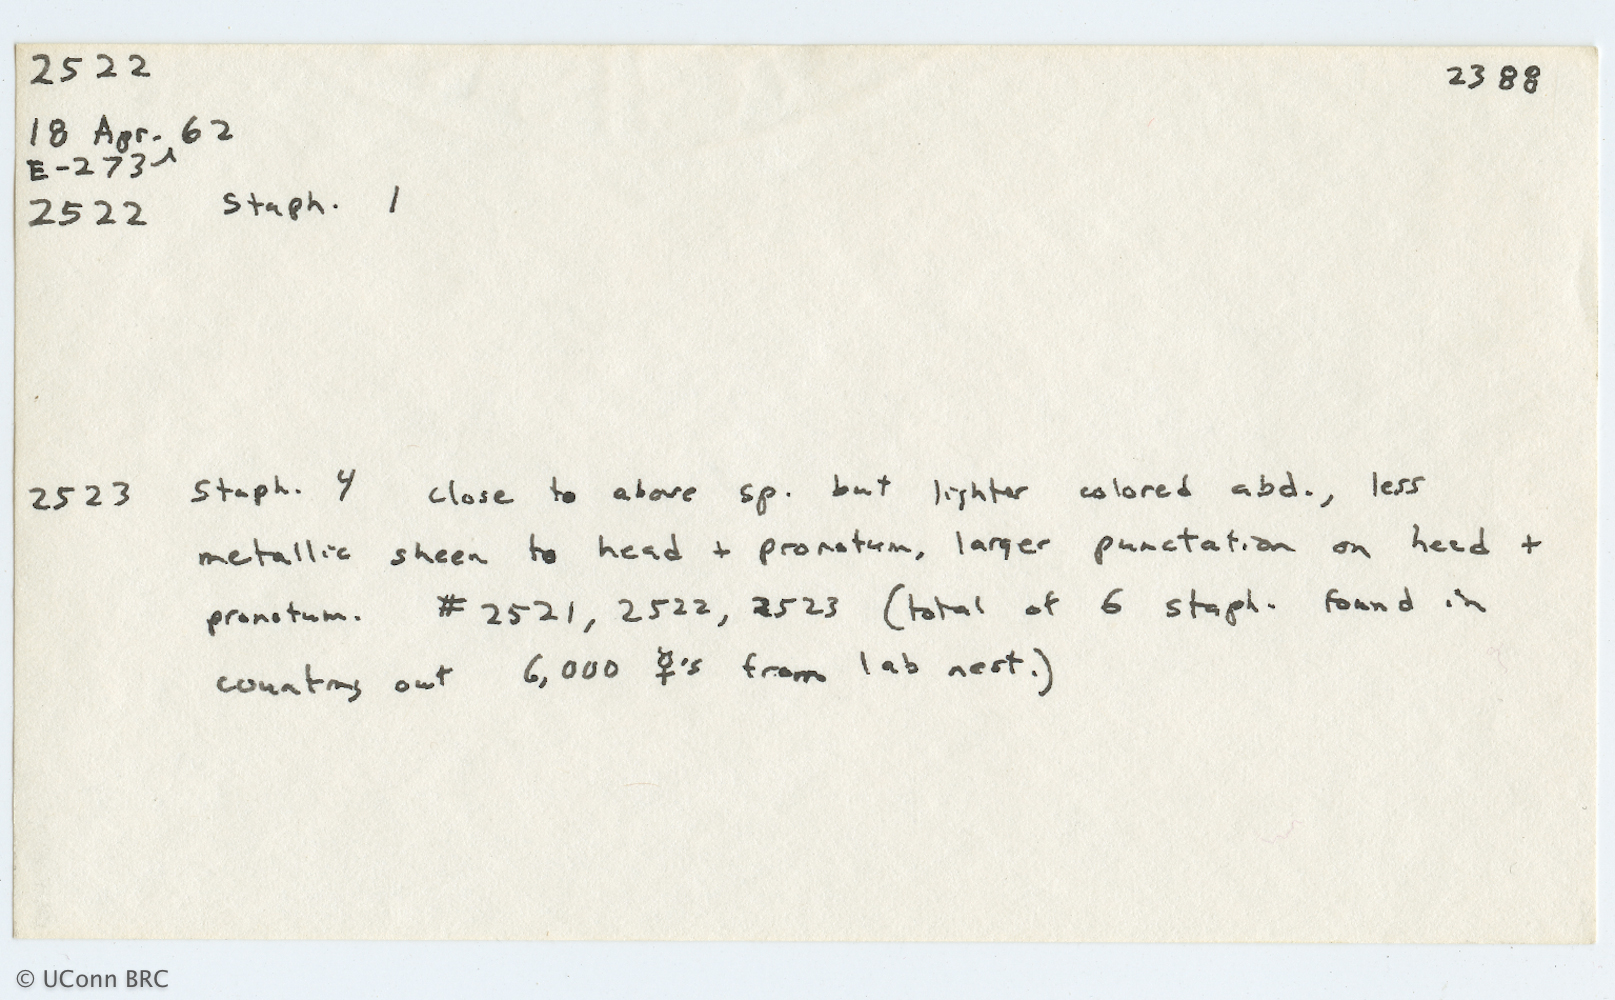 2522
2388
18 Apr. 62
E-273^
2522 Staph. 1
2523 Staph. 4 close to above sp. but lighter colored abd., less
metallic sheen to head + pronotum, larger punctation on head +
pronotum. # 2521, 2522, 2523 (total of 6 staph. found in
counting out 6,000 ☿'s from lab nest.)
© UConn BRC